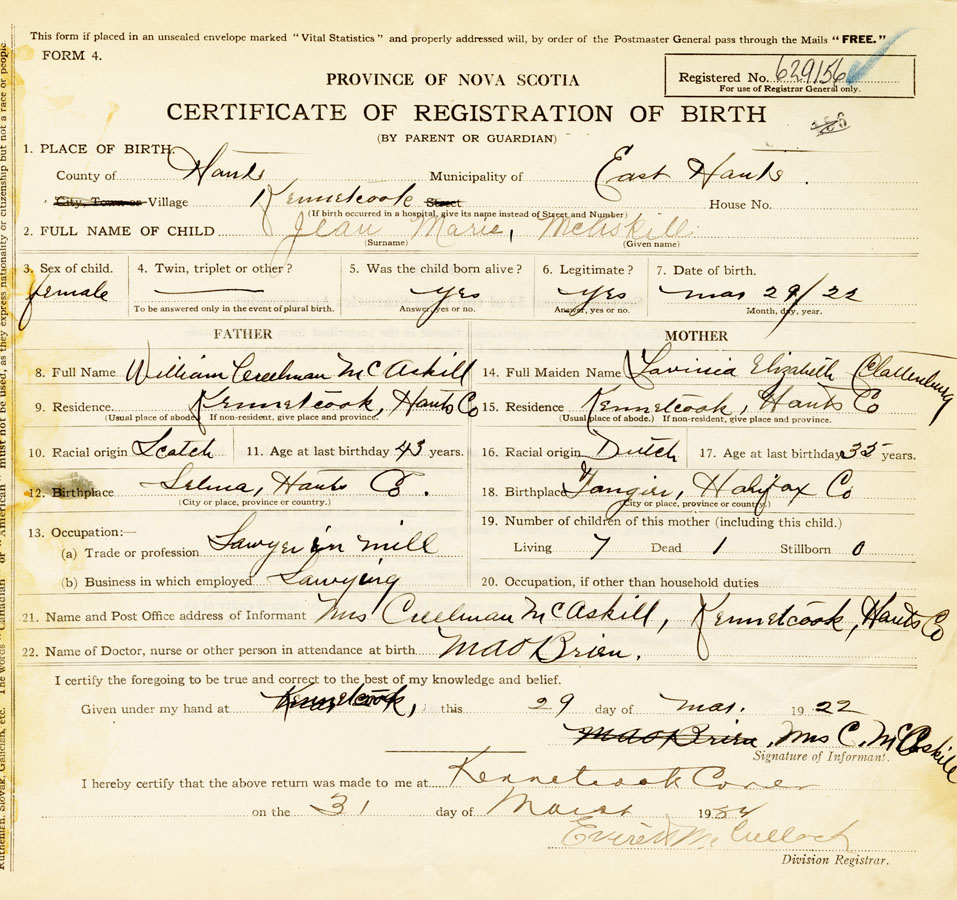 This form if placed in an unsealed envelope marked "Vital Statistics" and properly addressed will, by order of the Postmaster General pass through the Mails "FREE."
FORM 4.
Registered No. 629156
For use of Registrar General only.
PROVINCE OF NOVA SCOTIA
CERTIFICATE OF REGISTRATION OF BIRTH
(BY PARENT OR GUARDIAN)
1. PLACE OF BIRTH.
County of Hants Municipality of East Hants.
City, Town or Village Kennetcook Street House No.
(If birth occurred in a hospital, give its name instead of Street and Number)
2. FULL NAME OF CHILD Jean Marie, McAskill
(Surname) (Given name)
3. Sex of child. 4. Twin, triplet or other? 5. Was the child born alive? 6. Legitimate? 7. Date of birth.
female yes yes Mar 29/22
To be answered only in the event of plural birth. Answer, yes or no. Answer, yes or no. Month, day, year.
FATHER MOTHER
8. Full Name William Creelman McAskill 14. Full Maiden Name Lavinia Elizabeth Clattenburg
9. Residence Kennetcook, Hants Co 15. Residence Kennetcook, Hants Co
(Usual place of abode. If non-resident, give place and province. (Usual place of abode.) If non-resident, give place and province.
10. Racial origin Scotch 11. Age at last birthday 43 years. 16. Racial origin Dutch 17. Age at last birthday 35 years.
12. Birthplace Selma, Hants Co. 18. Birthplace Tangier, Halifax Co
(City or place, province or country.) (City or place, province or country.)
13. Occupation:— 19. Number of children of this mother (including this child.)
(a) Trade or profession Sawyer in mill Living 7 Dead 1 Stillborn 0
(b) Business in which employed Sawying 20. Occupation, if other than household duties
21. Name and Post Office address of Informant Mrs Creelman McAskill, Kennetcook, Hants Co
22. Name of Doctor, nurse or other person in attendance at birth M A O'Brien.
I certify the foregoing to be true and correct to the best of my knowledge and belief.
Given under my hand at Kennetcook, this 29 day of Mar. 1922
M A O'Brien, Mrs C. McCaskill
Signature of Informant.
I hereby certify that the above return was made to me at Kennetcook Corner
on the 31 day of March 19
Everett McCulloch
Division Registrar.
Ruthenian, Slovak, Galician, etc. The words "Canadian" or "American" must not be used, as they express nationality or citizenship but not a race or people.